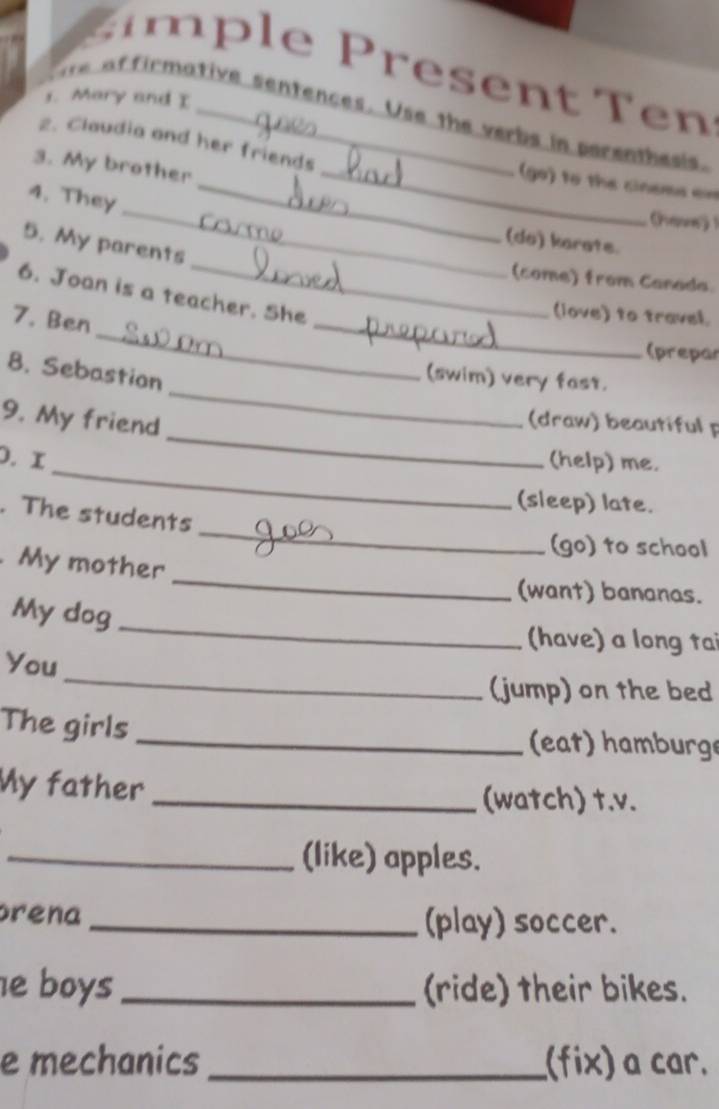 Simple Present Ten
affirmative sentences. Use the verbs in parenthesis.
1. Mary and I goes (go) to the cinema
2. Claudia and her friends had (have)
3. My brother does (do) karate.
4. They came (come) from Canada.
5. My parents loved (love) to travel.
6. Joan is a teacher. She prepared (prepar
7. Ben swom (swim) very fast.
8. Sebastian ____ (draw) beautiful p
9. My friend ____ (help) me.
0. I ____ (sleep) late.
. The students goes (go) to school
. My mother ____ (want) bananas.
My dog ____ (have) a long tai
You ____ (jump) on the bed
The girls ____ (eat) hamburge
My father ____ (watch) t.v.
____ (like) apples.
orena ____ (play) soccer.
he boys ____ (ride) their bikes.
e mechanics ____ (fix) a car.